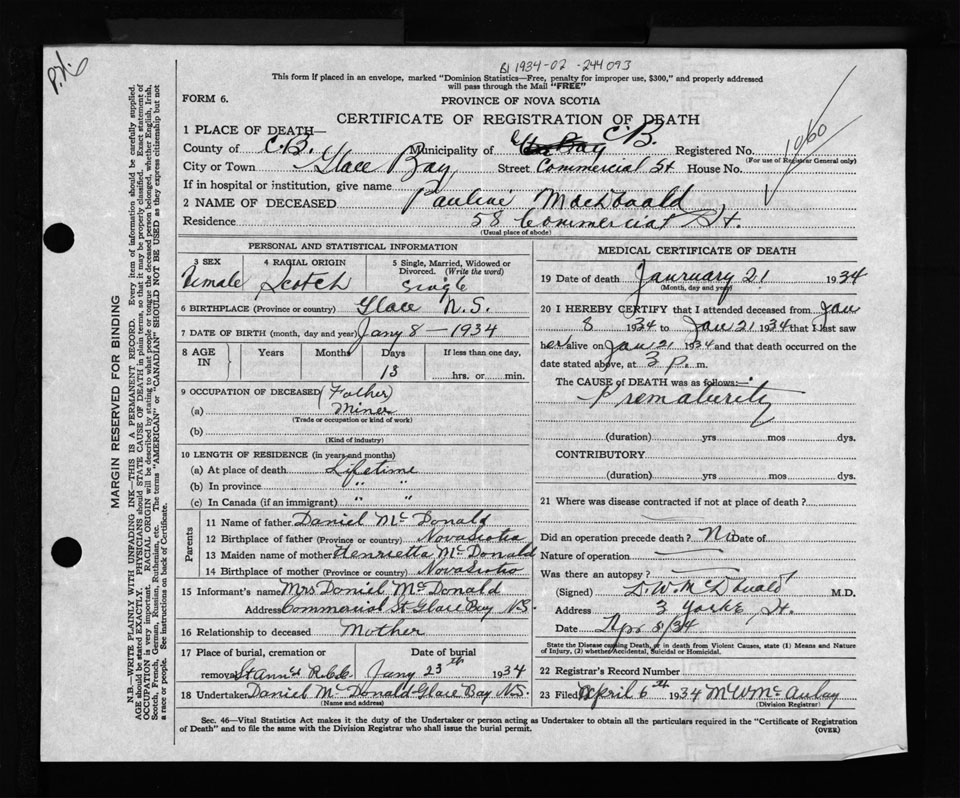 P.N.
BI 1934-02-244093
This form if placed in an envelope, marked "Dominion Statistics—Free, penalty for improper use, $300," and properly addressed
will pass through the Mail "FREE"
FORM 6.
PROVINCE OF NOVA SCOTIA
CERTIFICATE OF REGISTRATION OF DEATH
1 PLACE OF DEATH—
County of C.B. Municipality of C.B. Registered No. 1060
(For use of Registrar General only)
City or Town Glace Bay Street Commercial St House No.
If in hospital or institution, give name
2 NAME OF DECEASED Pauline MacDonald
Residence 58 Commercial St.
(Usual place of abode)
PERSONAL AND STATISTICAL INFORMATION
3 SEX 4 RACIAL ORIGIN 5 Single, Married, Widowed or
Divorced. (Write the word)
Female Scotch Single
6 BIRTHPLACE (Province or country) Glace N.S.
7 DATE OF BIRTH (month, day and year) Jany 8 — 1934
8 AGE IN Years Months Days If less than one day,
13 hrs. or min.
9 OCCUPATION OF DECEASED (Father)
(a) Miner
(Trade or occupation or kind of work)
(b)
(Kind of industry)
10 LENGTH OF RESIDENCE (in years and months)
(a) At place of death Lifetime
(b) In province " "
(c) In Canada (if an immigrant) " "
Parents
11 Name of father Daniel McDonald
12 Birthplace of father (Province or country) Nova Scotia
13 Maiden name of mother Henrietta McDonald
14 Birthplace of mother (Province or country) Nova Scotia
15 Informant's name Mrs Daniel McDonald
Address Commercial St Glace Bay NS.
16 Relationship to deceased Mother
17 Place of burial, cremation or Date of burial
removal St Ann's R.C.C. Jany 23th 1934
18 Undertaker Daniel McDonald Glace Bay N.S.
(Name and address)
MEDICAL CERTIFICATE OF DEATH
19 Date of death January 21 1934
(Month, day and year)
20 I HEREBY CERTIFY that I attended deceased from Jan
8 1934 to Jan 21 1934 that I last saw
her alive on Jan 21 1934 and that death occurred on the
date stated above, at 3 P. m.
The CAUSE of DEATH was as follows:—
Prematurity
(duration) yrs mos dys.
CONTRIBUTORY
(duration) yrs. mos. dys.
21 Where was disease contracted if not at place of death?
Did an operation precede death? No Date of
Nature of operation
Was there an autopsy?
(Signed) D.W. McDonald M.D.
Address 3 Yorke St.
Date Apr 8/34
State the Disease causing Death, or in death from Violent Causes, state (1) Means and Nature
of Injury, (2) whether Accidental, Suicidal or Homicidal.
22 Registrar's Record Number
23 Filed April 6th 1934 M W McAulay
(Division Registrar)
Sec. 46—Vital Statistics Act makes it the duty of the Undertaker or person acting as Undertaker to obtain all the particulars required in the "Certificate of Registration
of Death" and to file the same with the Division Registrar who shall issue the burial permit.
(OVER)
MARGIN RESERVED FOR BINDING
N.B.—WRITE PLAINLY WITH UNFADING INK—THIS IS A PERMANENT RECORD. Every item of information should be carefully supplied.
AGE should be stated EXACTLY. PHYSICIANS should STATE CAUSE OF DEATH in plain terms, so that it may be properly classified. Exact statement of
OCCUPATION is very important. RACIAL ORIGIN will be described by stating to what people or tongue the deceased person belonged, whether English, Irish,
Scotch, French, German, Russian, Ruthenian, etc. The terms "AMERICAN" or "CANADIAN" SHOULD NOT BE USED as they express citizenship but not
a race or people. See instructions on back of Certificate.